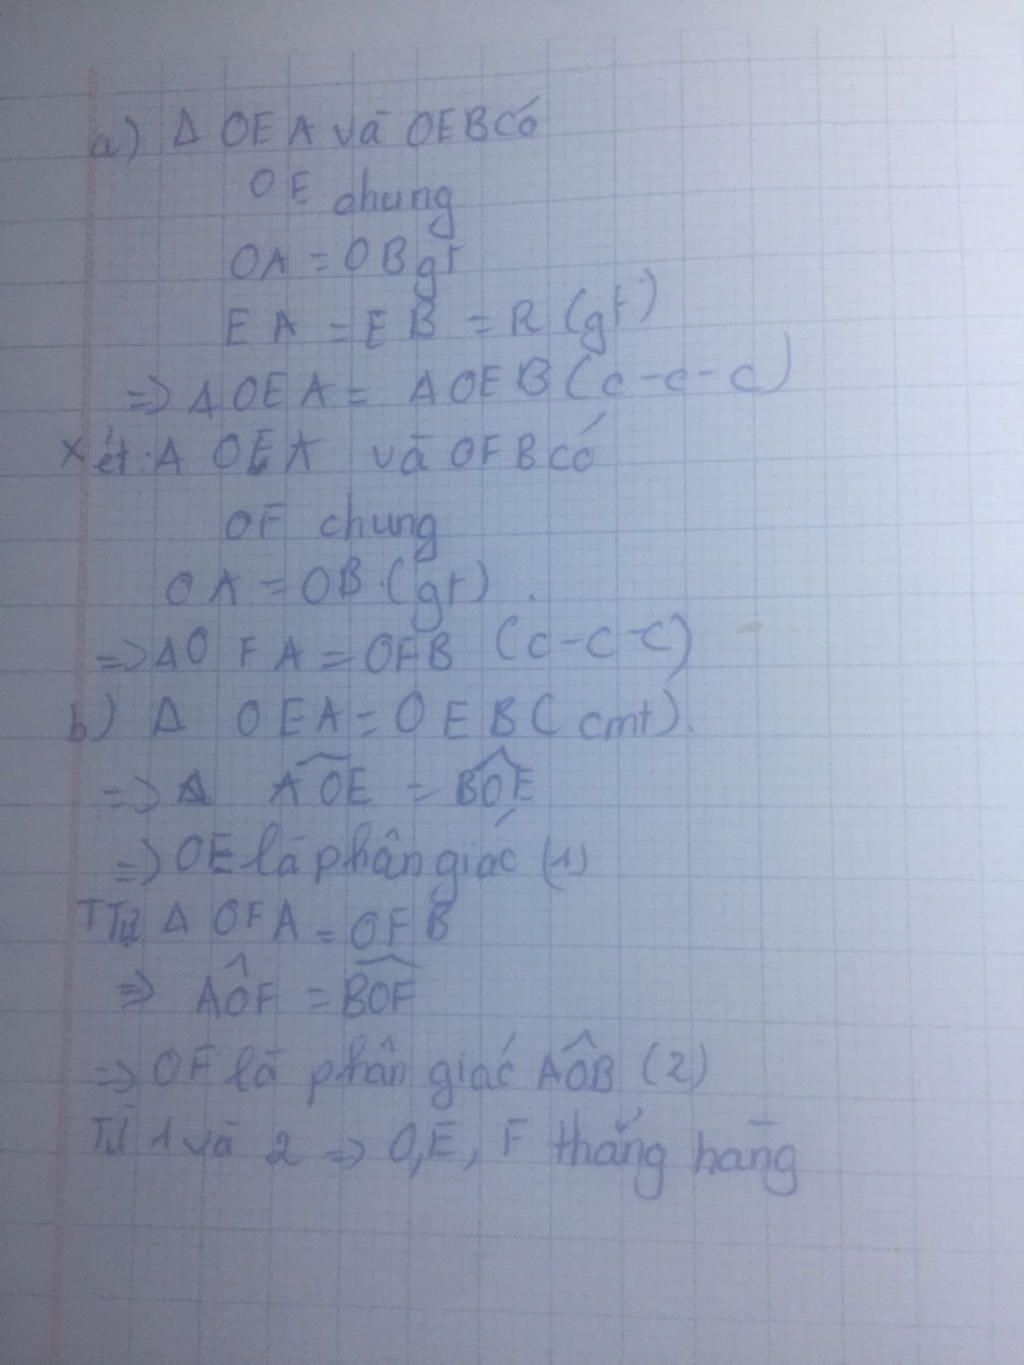 a) Δ OEA và OEB có
OE chung
OA = OB gt
EA = EB = R (gt)
=> Δ OEA = Δ OEB (c-c-c)
Xét: Δ OEA và OFB có
OF chung
OA = OB (gt).
=> ΔO FA = OFB (c-c-c)
b) Δ OEA = OEB (cmt).
=> Δ \widehat{AOE} = \widehat{BOE}
=> OE là phân giác (1)
TTừ Δ OFA = OFB
=> AÔF = \widehat{BOF}
=> OF là phân giác AÔB (2)
Từ 1 và 2 => O,E, F thẳng hàng